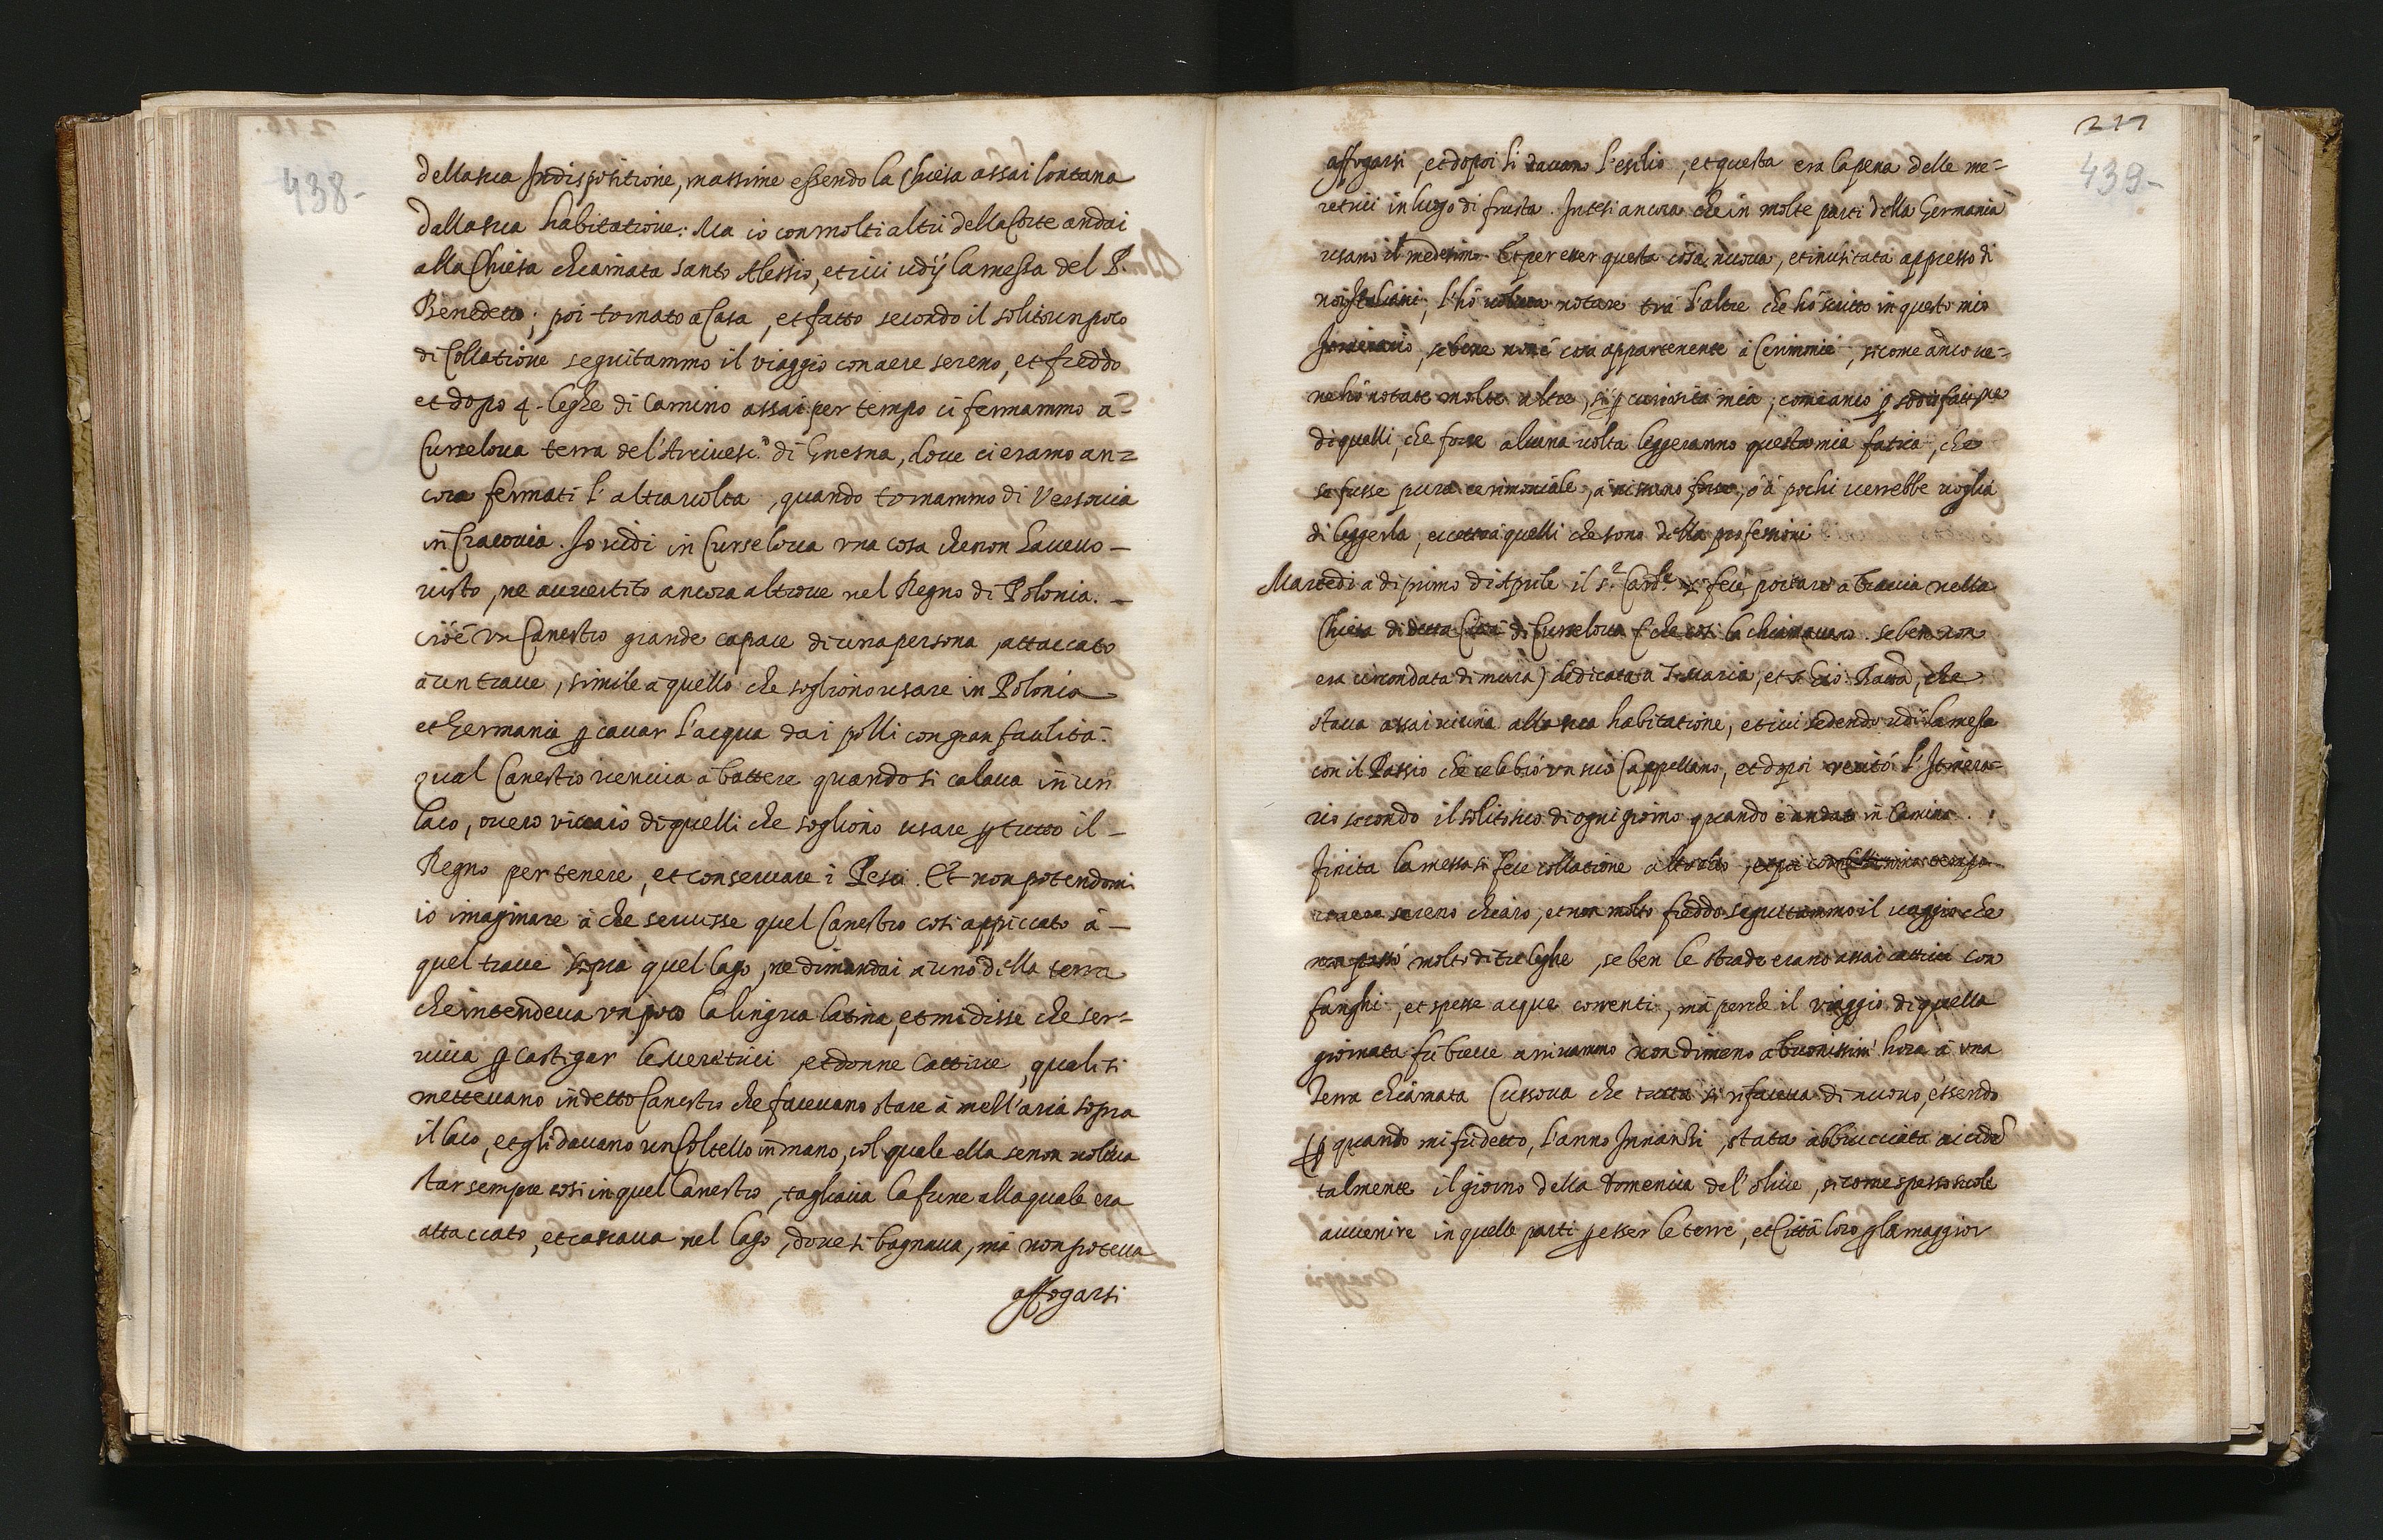 438-
della sua Indispositione, massime essendo la Chiesa assai lontana
dalla sua habitatione: Ma io con molti altri della Corte andai
alla Chiesa chiamata santo Alessio, et iui udÿ la messa del P.
Benedetto; poi tornato a Casa, et fatto secondo il solito un poco
di Collatione seguitammo il viaggio con aere sereno, et freddo
et dopo 4 - leghe di Camino assai per tempo ci fermammo à -
Curseloua terra del'Arciuesc.º di Gnesna, doue ci eramo an=
cora fermati l'altra uolta, quando tornammo di Vessouia
in Cracouia. Io uidi in Curseloua una cosa che non haueuo -
uisto, ne auuertito ancora altroue nel Regno di Polonia. -
cioè un Canestro grande capace di una persona, attaccato
à un traue, simile à quello che sogliono usare in Polonia
et Germania p cauar l'acqua dai polli con gran facilità.
qual Canestro ueniua à battere quando si calaua in un
laco, ouero viuaio di quelli che sogliono usare p tutto il -
Regno per tenere, et conseruare i Pesci. Et non potendomi
io imaginare à che seruisse quel Canestro così appiccato à -
quel traue sopra quel lago, ne dimandai à uno della terra
che intendeua un poco la lingua latina, et mi disse che ser=
uiua p castigar le meretrici, et donne cattiue, quali si
metteuano in detto Canestro che faceuano stare à mell'aria sopra
il laco, et gli dauano un Coltello in mano, col quale ella se non uoleua
star sempre così in quel Canestro, tagliaua la fune alla quale era
attaccato, et cascaua nel lago, doue si bagnaua, mà non poteua
affogarsi
217
439-
affogarsi, et dopoi li dauano l'esilio, et questa era la pena delle me=
retrici in luogo di frusta. Intesi ancora che in molte parti della Germania
usano il medesimo. Et per esser questa cosa nuoua, et inusitata appresso di
noi Italiani, l'hò uoluta notare trà l'altre che hò scritto in questo mio
Itinerario, se bene non è cosa appartenente à Cerimonie, si come anco ue=
ne hò notate molte altre, sì p curiosità mia, come anco p sodisfatt.ne
di quelli, che forse alcuna uolta leggeranno questa mia fatica, che
se fusse pura cerimoniale, à nissuno forse, ò à pochi uerrebbe uoglia
di leggerla, eccetto à quelli che sono della professioni
Martedi a di primo di Aprile il S.r Card.le si fece portare à braccia nella
Chiesa di detta Città di Curseloua (che così la chiamauano. se ben non
era circondata di mura) dedicata a S. Maria, et a Gio: Batta, che
staua assai uicina alla sua habitatione, et iui sedendo udì la messa
con il Passio che celebrò un suo Cappellano, et dopoi recitò l'Itinera=
rio secondo il solito suo di ogni giorno quando è andato in Camino.
finita la messa si fece collatione al solito, et poi con
aere sereno chiaro, et non molto freddo seguitammo il uiaggio che
non passò molto di tre leghe, se ben le strade erano assai cattiue con
fanghi, et spesse acque correnti, mà perche il viaggio di quella
giornata fù breue arriuammo non dimeno a buonissim' hora à una
Terra chiamata Cussoua che tutta si rifaceua di nuouo, essendo
(p quando mi fu detto, l'anno Innanzi, stata abbrucciata accidẽ
talmente il giorno della Domenica del'oliue, si come spesso suole
auuenire in quelle parti p esser le terre, et Città loro p la maggior